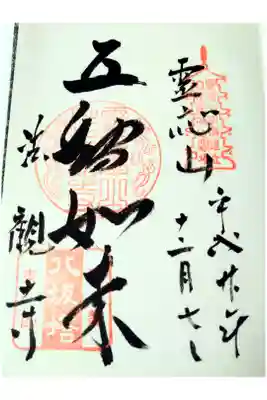 靈応山
平成廿年
十二月七日
五智如来
法觀寺
八坂塔